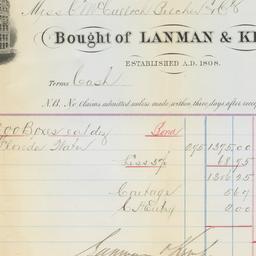 Miss C McCulloch Beecher & Co
Bought of LANMAN & KE
ESTABLISHED A.D. 1808.
Terms Cash
N.B. No Claims admitted unless made within three days after recei
00 Boxes ea1dz Bond
Florida Water 275 1375.00
Less 5% 68.75
1306.25
Cartage 5.64
C H Entry 2.00
Lanman & Kemp